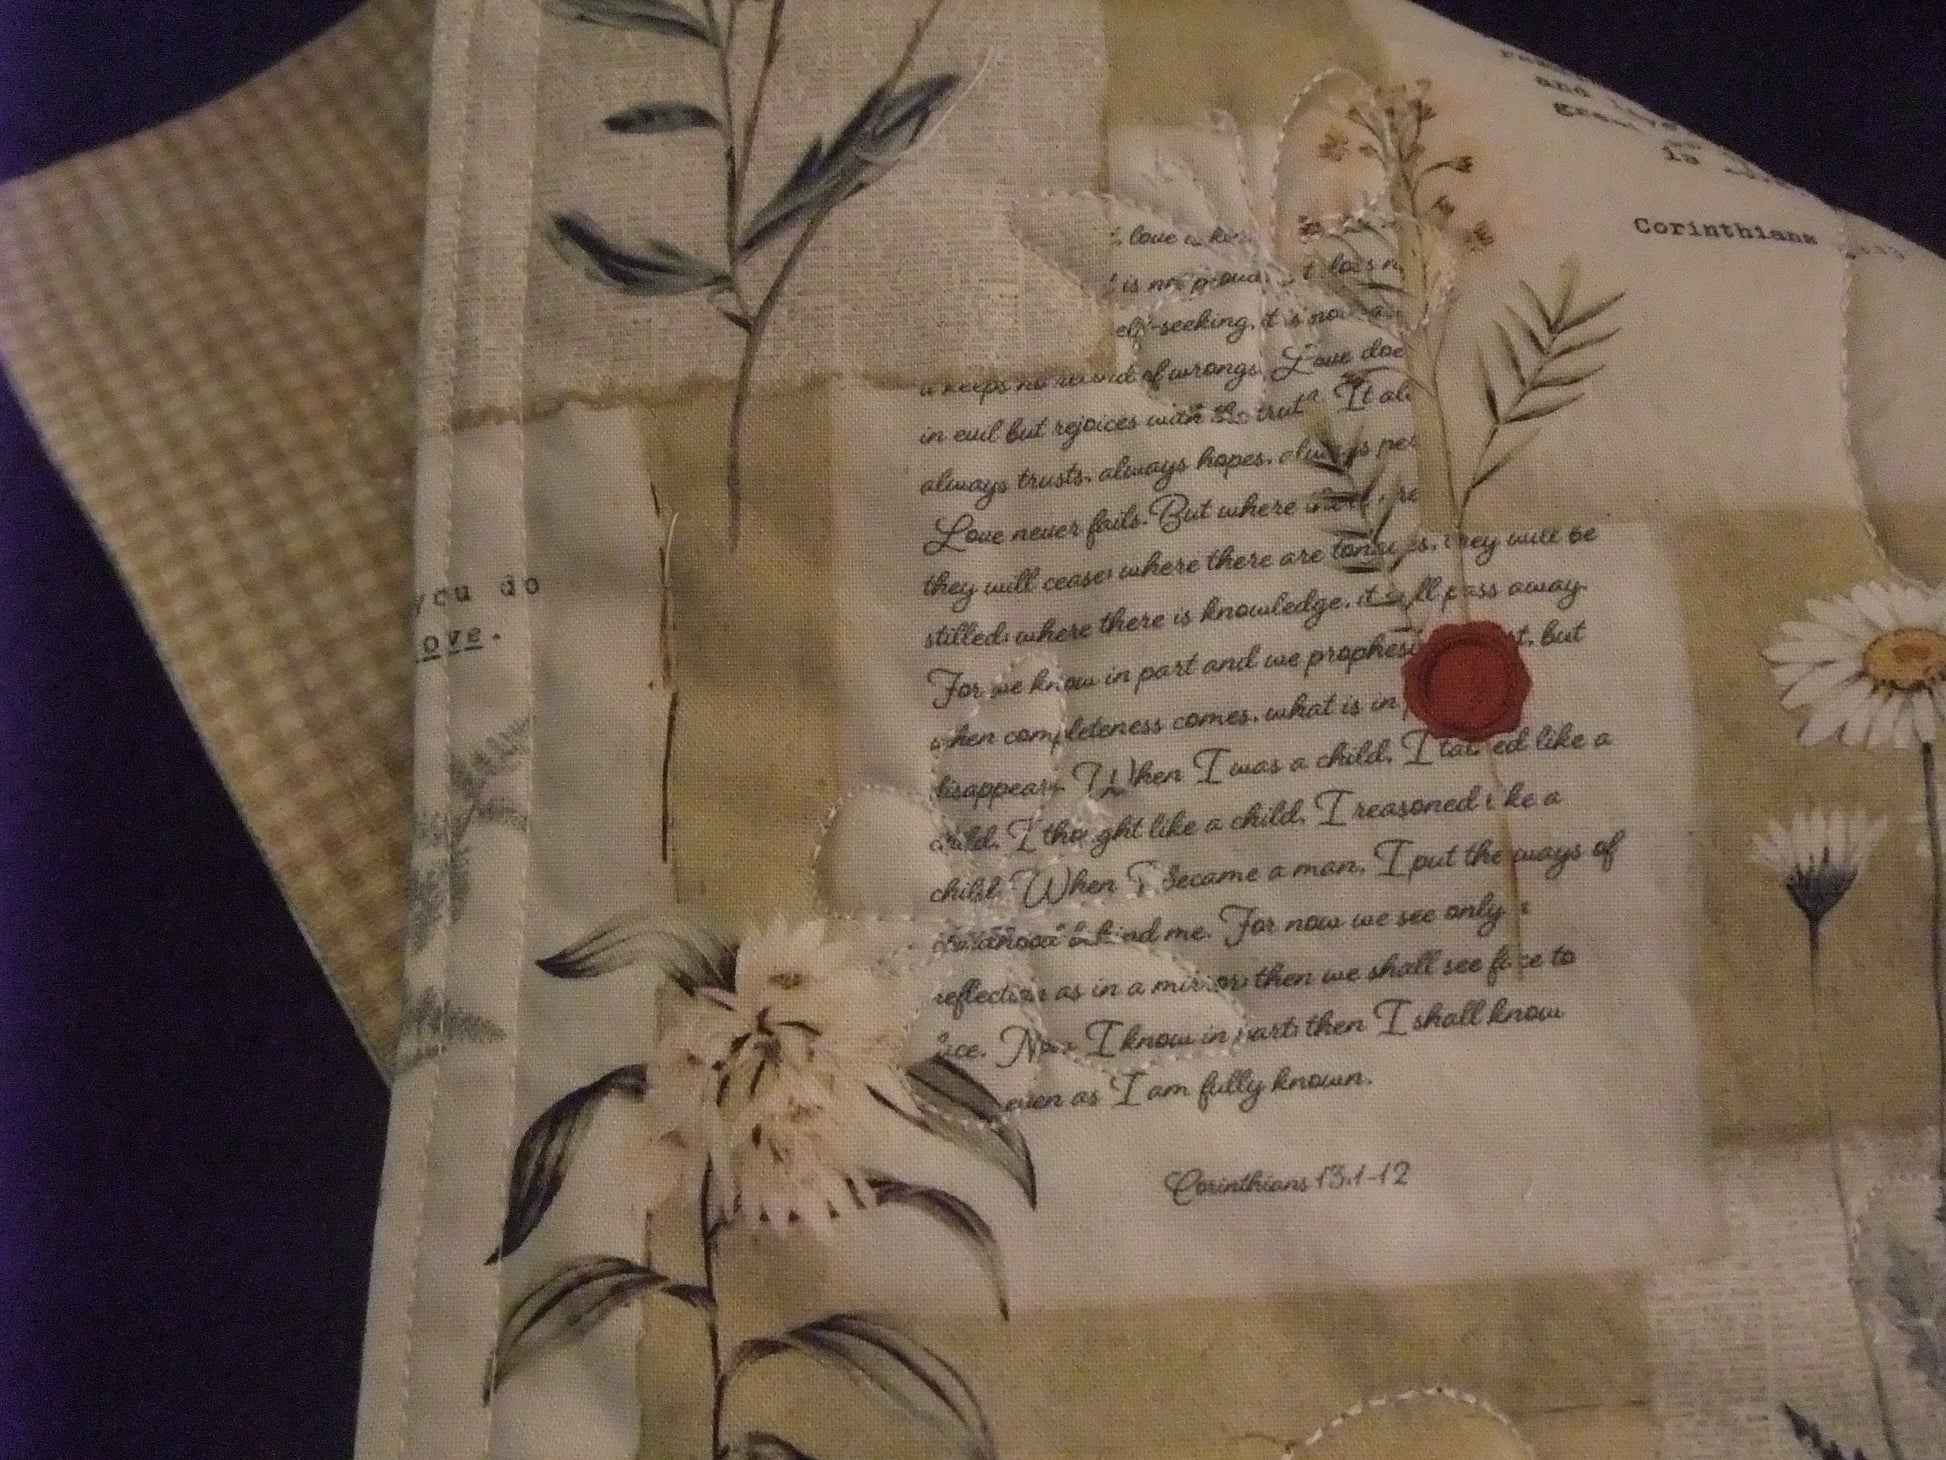 and
is
Corinthians
you do
love.
love is
is not proud, it does
self-seeking, it is not
it keeps no record of wrongs. Love doe
in evil but rejoices with the truth. It al
always trusts, always hopes, always per
Love never fails. But where
they will cease; where there are tongues, they will be
stilled; where there is knowledge, it will pass away.
For we know in part and we prophesy but
when completeness comes, what is in
disappears. When I was a child, I talked like a
child, I thought like a child, I reasoned like a
child. When I became a man, I put the ways of
childhood behind me. For now we see only
reflection as in a mirror; then we shall see face to
face. Now I know in part; then I shall know
even as I am fully known.
Corinthians 13.1-12